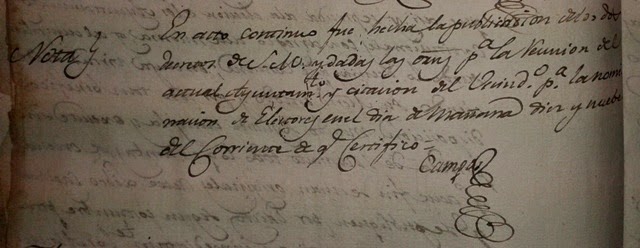 Nota
En acto continuo fue hecha la publicacion de los dos
de S.M. y dadas las para la Reunion del
actual Ayuntamto y citacion del Vecindo pa la nomi
nacion de Electores en el dia de Mañana diez y nueve
del Corriente de q Certifico=